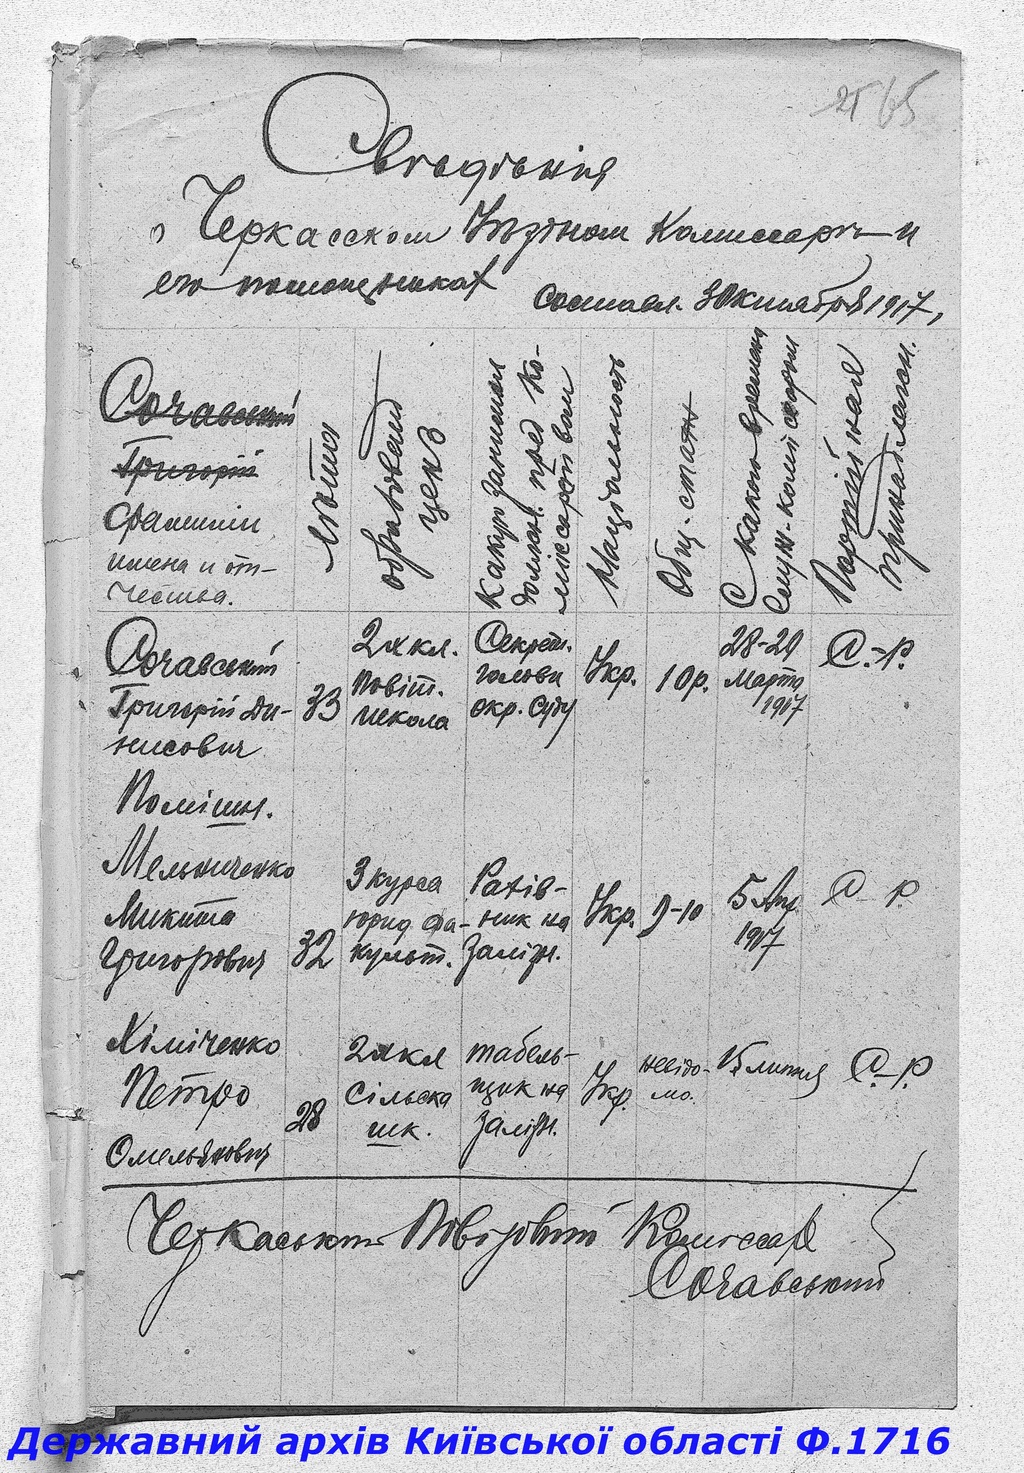 65
Свѣдѣнія
о Черкасском Уѣздном Комиссарѣ и
его помощниках
составл. 30 октября 1917,
Сочавський
Григорій
Фамиліи,
имена и от-
чества.
Лѣта
образоват.
ценз
Какую занимал
должн. пред ко-
миссарством
Націальность
Общ. стаж
С какого времени
служ. комиссаром
Партійная
принадлежн.
Сочавський
Григорій Ди-
нисович
33
2х кл.
повіт.
школа
Секрет.
голови
окр. суду
Укр.
10 р.
28-29
марта
1917
С.-Р.
Помішн.
Мельниченко
Микита
Григорович
32
3 курса
юрид. фа-
культ.
Рахів-
ник на
залізн.
Укр.
9-10
5 Апр.
1917
С - Р.
Хіміченко
Петро
Омельянович
28
2х кл
сільска
шк.
табель-
щик на
залізн.
Укр.
невідо-
мо.
15 липня
С.-Р.
Черкаський Повітовий Комиссар
Сочавський
Державний архів Київської області Ф.1716